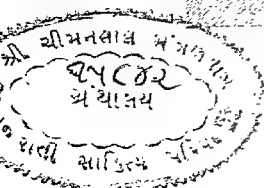 શ્રી ચીમનલાલ મંગળદાસ
૨૫૮૪૨
ગ્રંથાલય
સાહિત્ય પરિષદ